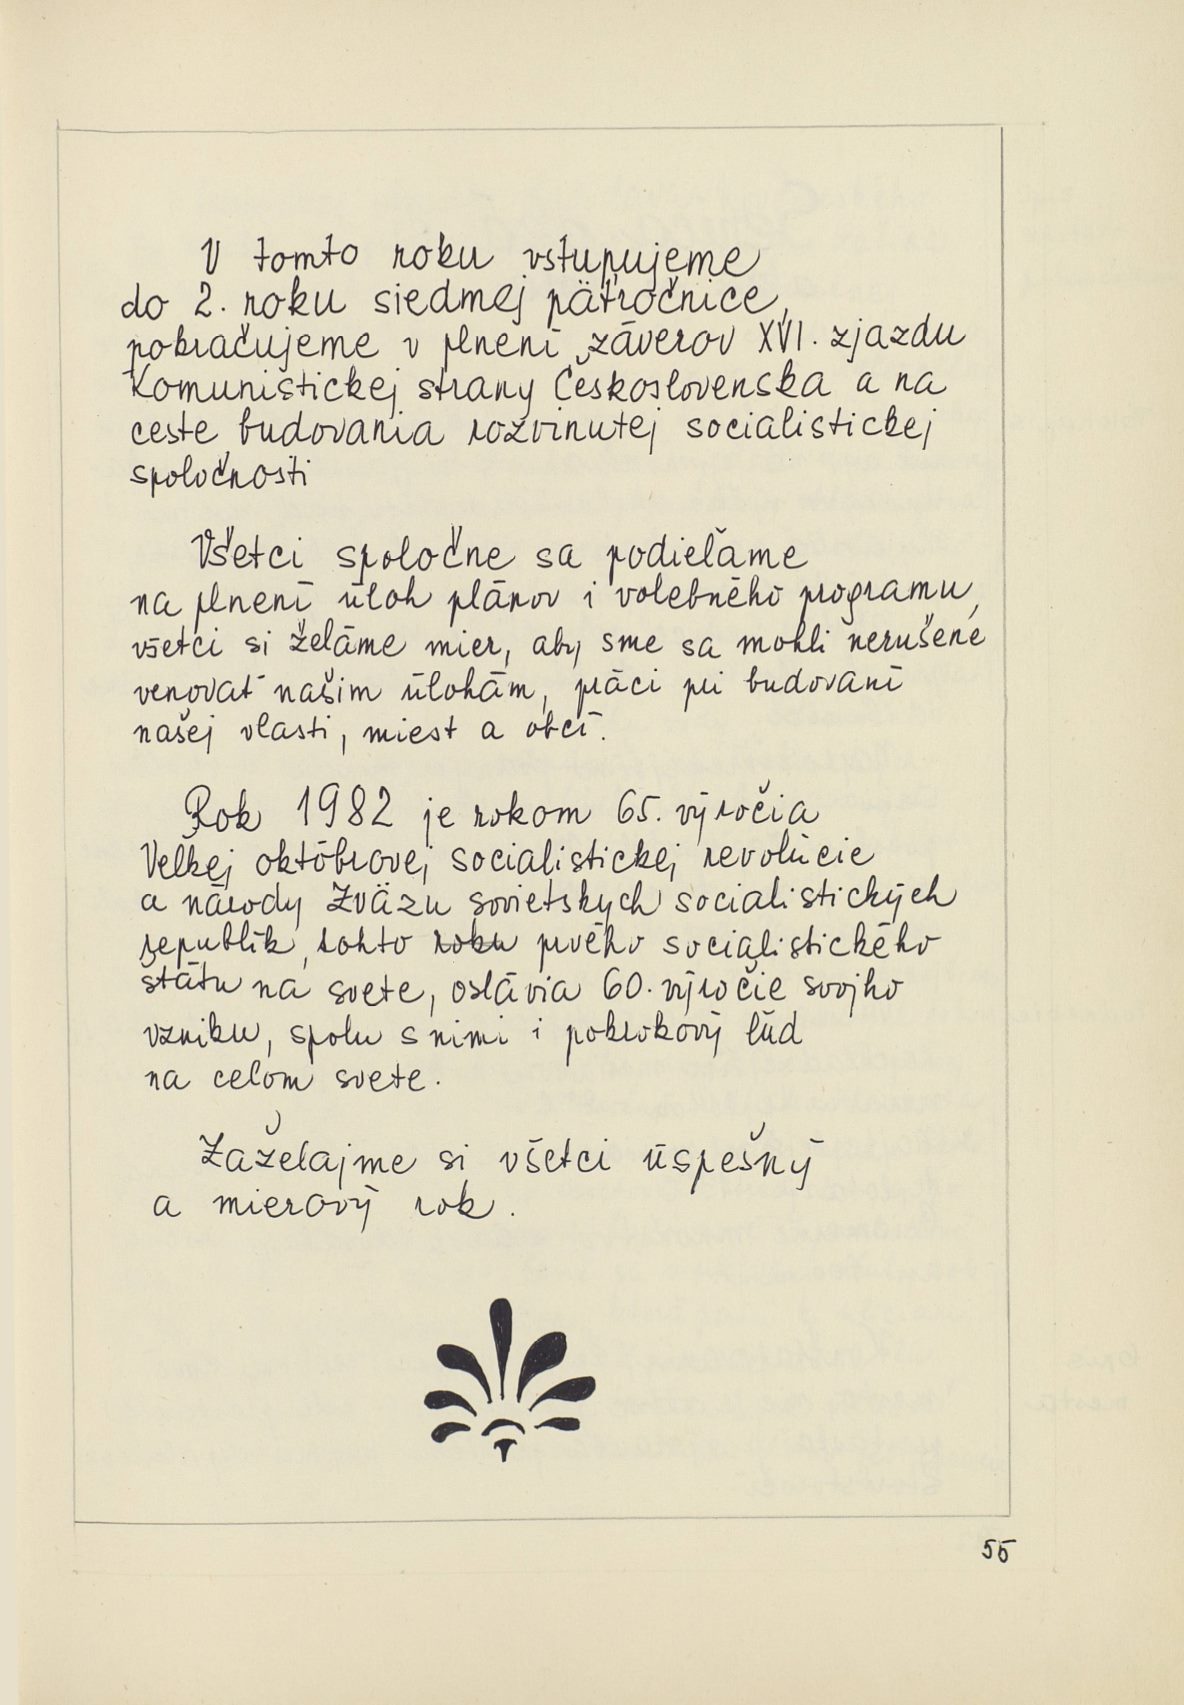 V tomto roku vstupujeme
do 2. roku siedmej päťročnice,
pokračujeme v plnení záverov XVI. zjazdu
Komunistickej strany Československa a na
ceste budovania rozvinutej socialistickej
spoločnosti
Všetci spoločne sa podieľame
na plnení úloh plánov i volebného programu,
všetci si želáme mier, aby sme sa mohli nerušene
venovať našim úlohám, práci pri budovaní
našej vlasti, miest a obcí.
Rok 1982 je rokom 65. výročia
Veľkej októbrovej socialistickej revolúcie
a národy Zväzu sovietskych socialistických
republík, tohto roku prvého socialistického
štátu na svete, oslávia 60. výročie svojho
vzniku, spolu s nimi i pokrokový ľud
na celom svete.
Zaželajme si všetci úspešný
a mierový rok.
55